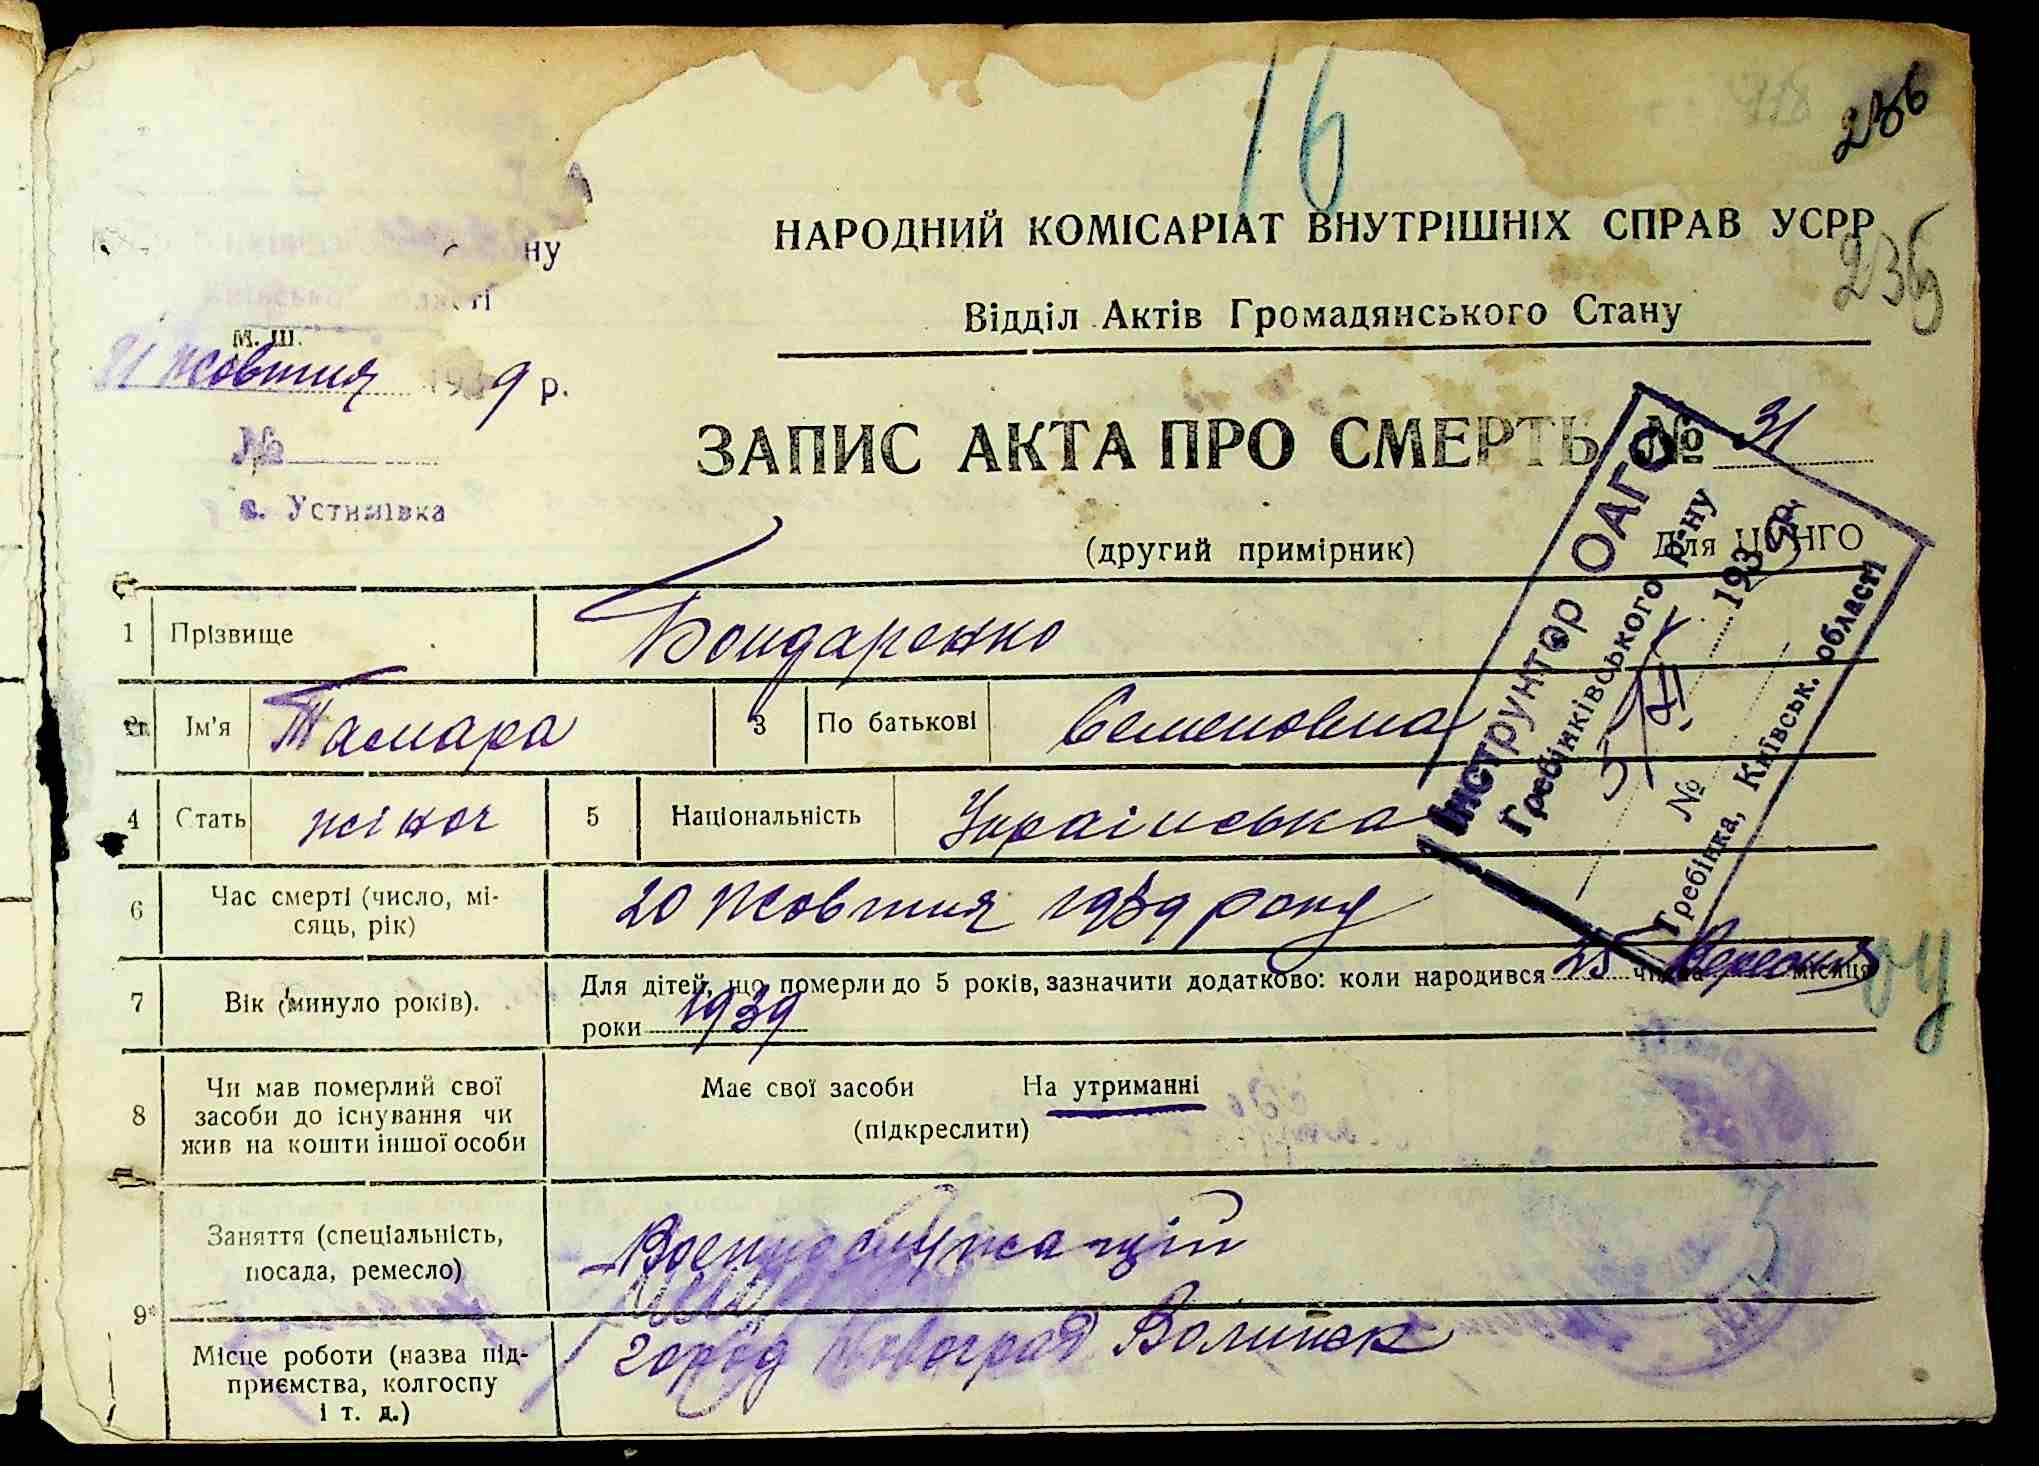 16
236
236
НАРОДНИЙ КОМІСАРІАТ ВНУТРІШНІХ СПРАВ УСРР
Відділ Актів Громадянського Стану
ну
М. Ш.
21 Жовтня 1939 р.
№
с. Устимівка
ЗАПИС АКТА ПРО СМЕРТЬ № 31
(другий примірник)
Для ЦУНГО
Інструнтор ОАГС
Гребінківського р-ну
193 9 р.
№
Гребінка, Київськ. області
1 Прізвище Бондаренко
2 Ім'я Тамара 3 По батькові Семеновна
4 Стать жіноч 5 Національність Українська
6 Час смерті (число, мі-
сяць, рік) 20 Жовтня 1939 року
7 Вік (минуло років). Для дітей, що померли до 5 років, зазначити додатково: коли народився 25 числа Вересня місяця
роки 1939
8 Чи мав померлий свої
засоби до існування чи
жив на кошти іншої особи
Має свої засоби На утриманні
(підкреслити)
9 Заняття (спеціальність,
посада, ремесло)
Военнослужащій
Місце роботи (назва під-
приємства, колгоспу
і т. д.)
город Новоград Волинск